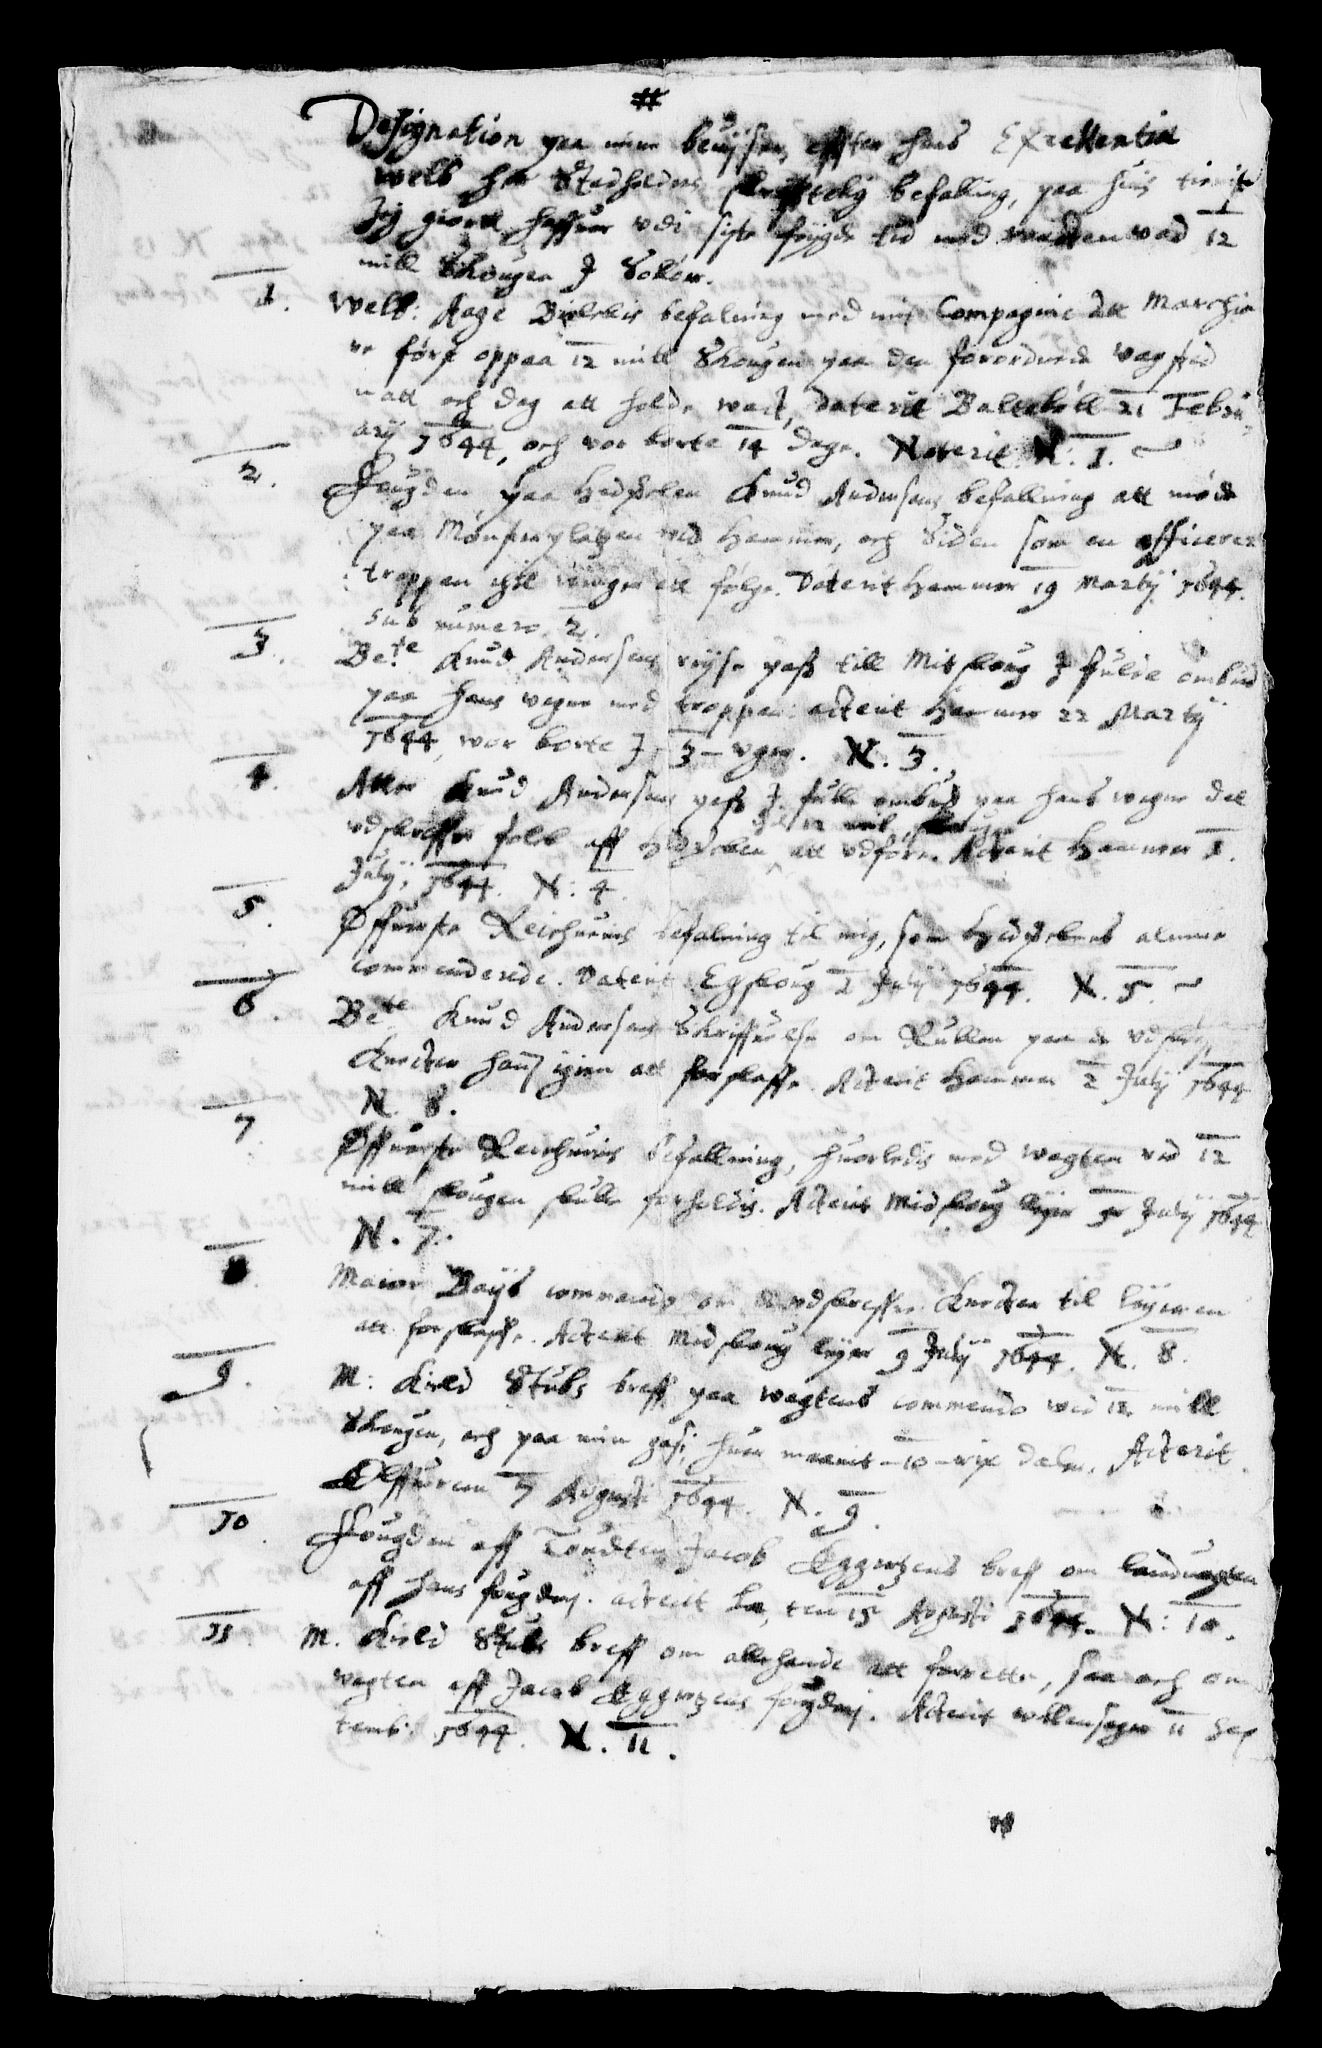 #
Designation paa mine beuijser, effter hans Excellentia
welb her Stadholders skrifftelig befalling, paa huis tieniste
Jeg giortt haffuer vdi siste feijgde tid med wacten ved 12
mill Skougen J Soløer.
1. Welb: Aage Bielckis befalning med mit Compagnie att Marchie
reførst oppaa 12 mill Skougen paa den forordnede wag sted
natt och dag att holde wact, daterit Baltebøll 21 Febru
arij 1644, och vor borte 14 dage. Noterit N: 1.
2. Fougden paa Hedmarcken Knud Andersens befallning att møde
paa Mønsterpladtzen ved Hammer, och Siden som en officerer
troppen ihit wunger att følge. Daterit Hammer 19 Martij 1644.
sub numero 2.
3. Bete Knud Andersens reijse pass till Mitskoug J fulde ombud
paa hans wegne med troppen: acterit Hammer 22 Martij
1644, wor borte J 3 - vger. N. 3.
4. Atter Knud Andersens pass J fulde ombud paa hans wegne det
vdskreffne folck aff Hedmarcken
til 12 mil skougen
att vdføre. Acterit Hammer 1.
Julij, 1644. N: 4.
5. Øffuerste Reichweins befalning til mig, som Hedmarckens almue
commenderede. Daterit Egskoug 2 Julij 1644. N. 5.
6. Bete Knud Andersens Skriffuelse om Rullen paa de vdskreffne
Knecter hannem igien att forskaffe. Acterit Hammer 2 Julij 1644
N. 6.
7. Øffuerste Reichweins befallning, huorledis med wagten ved 12
mill skougen skulle forholdis. Acterit Midskoug leyer 5 Julij 1644
N. 7.
8. Maior Baijs commando om vdskreffne Knecter til leyeren
att forskaffe. Acterit Midskoug leyer 9 Julij 1644. N. 8.
9. M: Kield Stubs breff paa wagtens commando wed 12 mill
Skougen, och paa min gasi, huer maanit - 10 - rix daler. Acterit
Elffuerum 7 Augusti 1644. N. 9.
10. Fougden aff Toudten Jacob Eggertzens breff om landuagten
aff hans fougderj. acterit Lee, ten 15 Augusti 1644. N: 10.
11. M. Kield Stubs breff om allehande att forrette, saa och om
wagten aff Jacob Eggertzens fougderj. Acterit Wllensager 11 Sep
temb: 1644. N. 11.